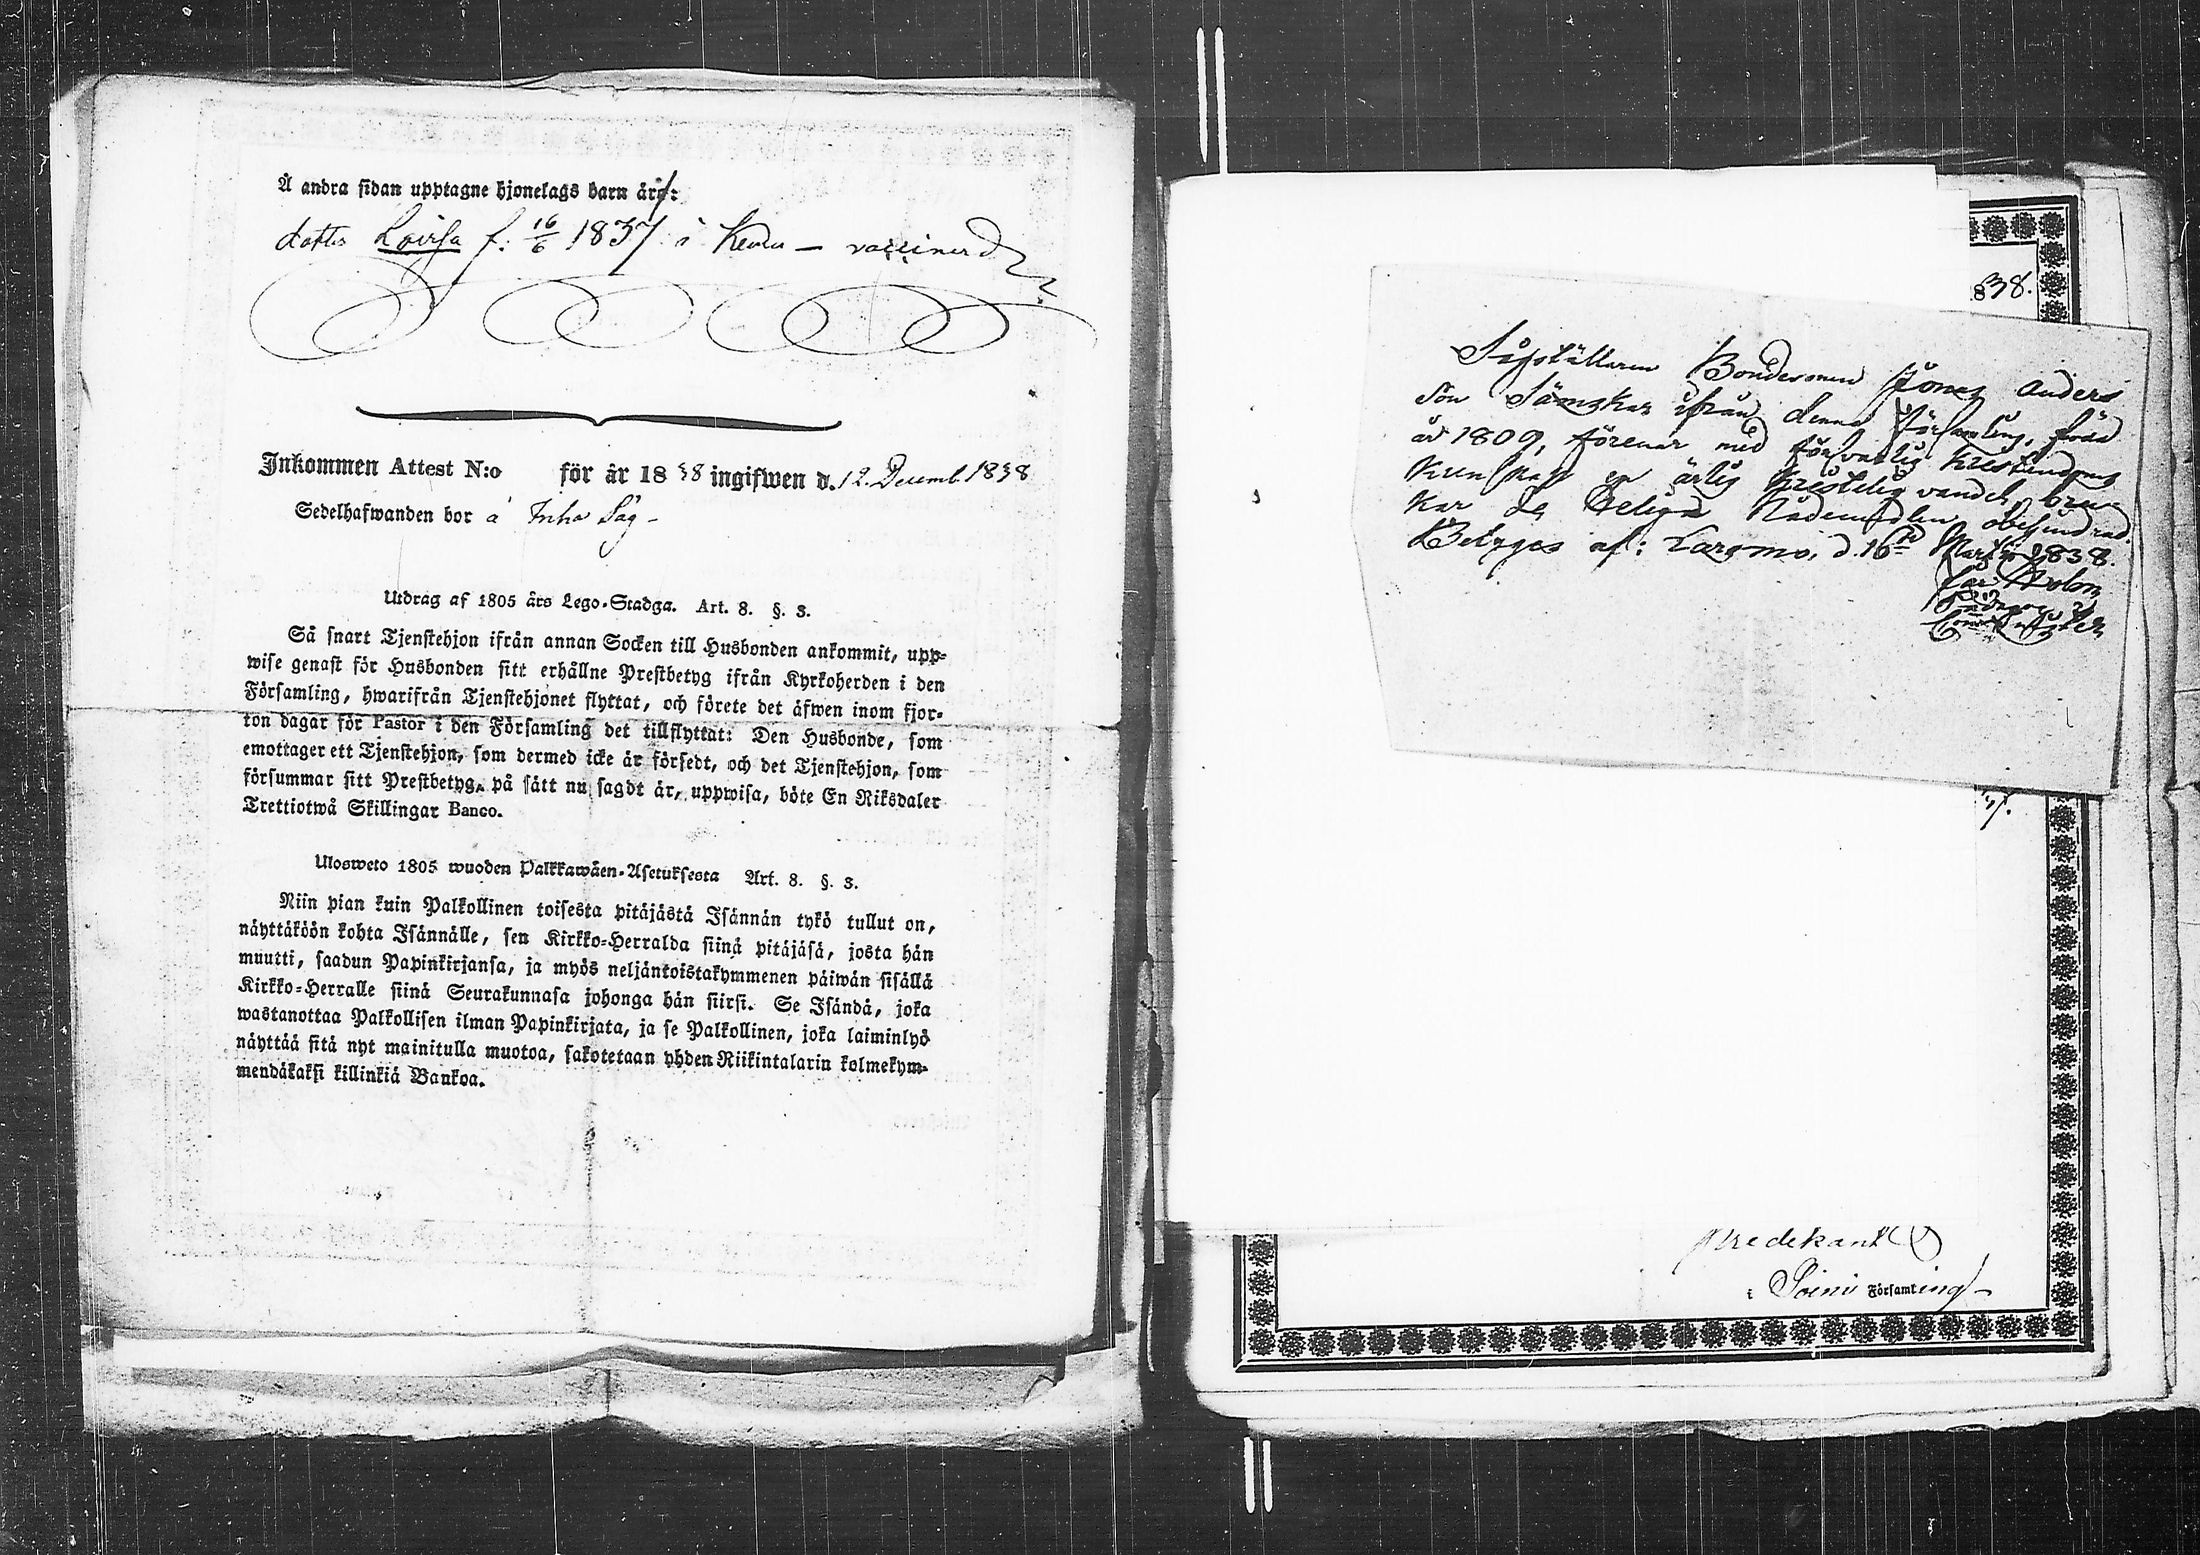 Å andra sidan upptagne hjonelags barn äro:
dotter Lovisa f. 16/6 1837 i Keuru — vaccinerad
Inkommen Attest N:o för år 1838 ingifwen d. 12. Decemb. 1838
Sedelhafwanden bor å Inha Såg -
Utdrag af 1805 års Lego-Stadga. Art. 8. §. 3.
Så snart Tjenstehjon ifrån annan Socken till Husbonden ankommit, upp-
wise genast för Husbonden sitt erhållne Prestbetyg ifrån Kyrkoherden i den
Församling, hwarifrån Tjenstehjonet flyttat, och förete det äfwen inom fjor-
ton dagar för Pastor i den Församling det tillflyttat: Den Husbonde, som
emottager ett Tjenstehjon, som dermed icke är försedt, och det Tjenstehjon, som
försummar sitt Prestbetyg, på sätt nu sagdt är, uppwisa, böte En Riksdaler
Trettiotwå Skillingar Banco.
Ulosweto 1805 wuoden Palkkawäen-Asetuksesta Art. 8. §. 3.
Niin pian kuin Palkollinen toisesta pitäjästä Isännän tykö tullut on,
näyttäköön kohta Isännälle, sen Kirkko-Herralda siinä pitäjäsä, josta hän
muutti, saadun Papinkirjansa, ja myös neljäntoistakymmenen päiwän sisällä
Kirkko-Herralle siinä Seurakunnasa johonga hän siirsi. Se Isändä, joka
wastanottaa Palkollisen ilman Papinkirjata, ja se Palkollinen, joka laiminlyö
näyttää sitä nyt mainitulla muotoa, sakotetaan yhden Riikintalarin kolmekym-
mendäkaksi killinkiä Bankoa.
838.
Bondesonen Jonas Anders
Son Sämskar ifrån denna Församling, född
år 1809, förenar med försvarlig Kristendoms
Kunskap en ärlig Kristelig vandel, bru-
kar de Heliga Nådemedlen obehindrad.
Betygas af: Larsmo, d. 16de Martii 1838.
Predekant
i Soini Församling -